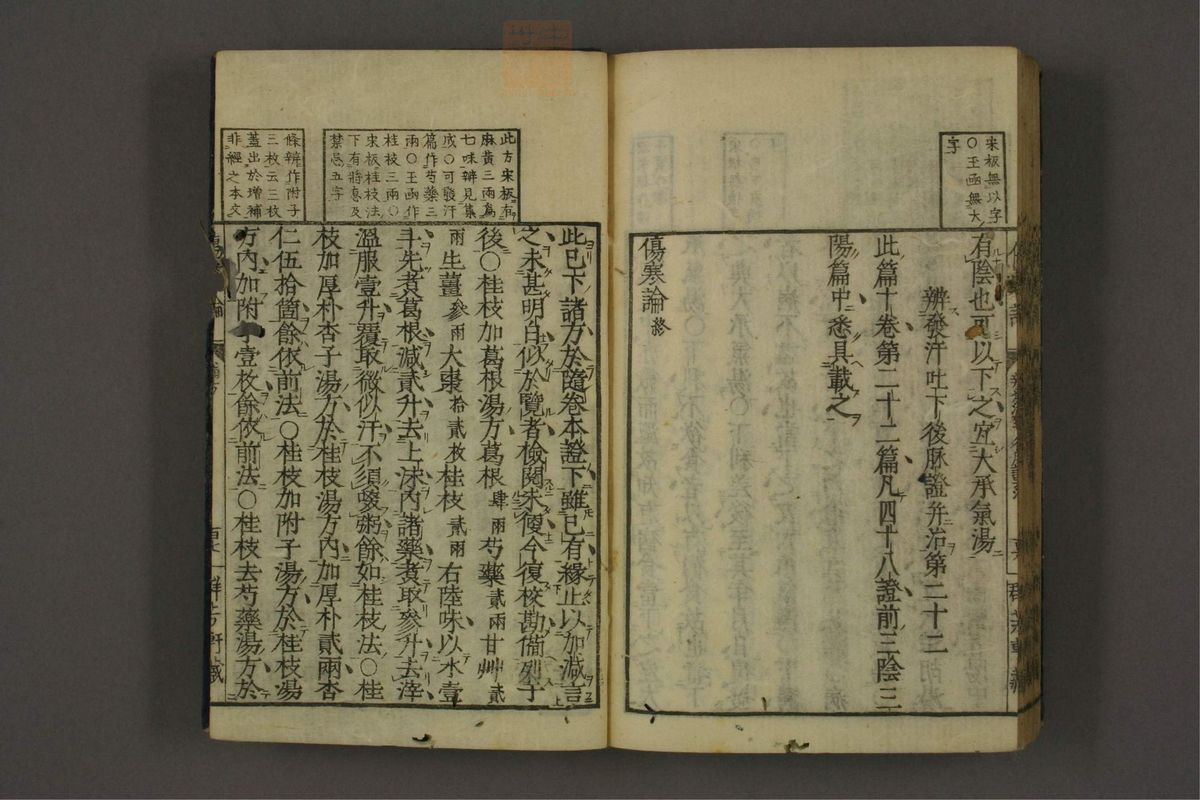 宋板無以字
○玉函無大
字
有陰也可以下之宜大承氣湯
辨發汗吐下後脉證并治第二十二
此篇十卷第二十二篇凡四十八證前三陰三
陽篇中悉具載之
傷寒論終
此方宋板有
麻黃三兩爲
七味辨見集
成○可發汗
篇作芍藥三
兩○玉函作
桂枝三兩○
宋板桂枝法
下有將息及
禁忌五字
條辨作附子
三枚云三枚
蓋出於增補
非經之本文
此已下諸方於隨卷本證下雖已有緣止以加減言
之未甚明白似於覽者檢閱未便今復校勘備列于
後○桂枝加葛根湯方葛根肆兩芍藥貳兩甘艸貳
兩生薑參兩大棗拾貳枚桂枝貳兩右陸味以水壹
斗先煑葛根減貳升去上沬內諸藥煑取參升去滓
溫服壹升覆取微似汗不須啜粥餘如桂枝法○桂
枝加厚朴杏子湯方於桂枝湯方內加厚朴貳兩杏
仁伍拾箇餘依前法○桂枝加附子湯方於桂枝湯
方內加附子壹枚餘依前法○桂枝去芍藥湯方於